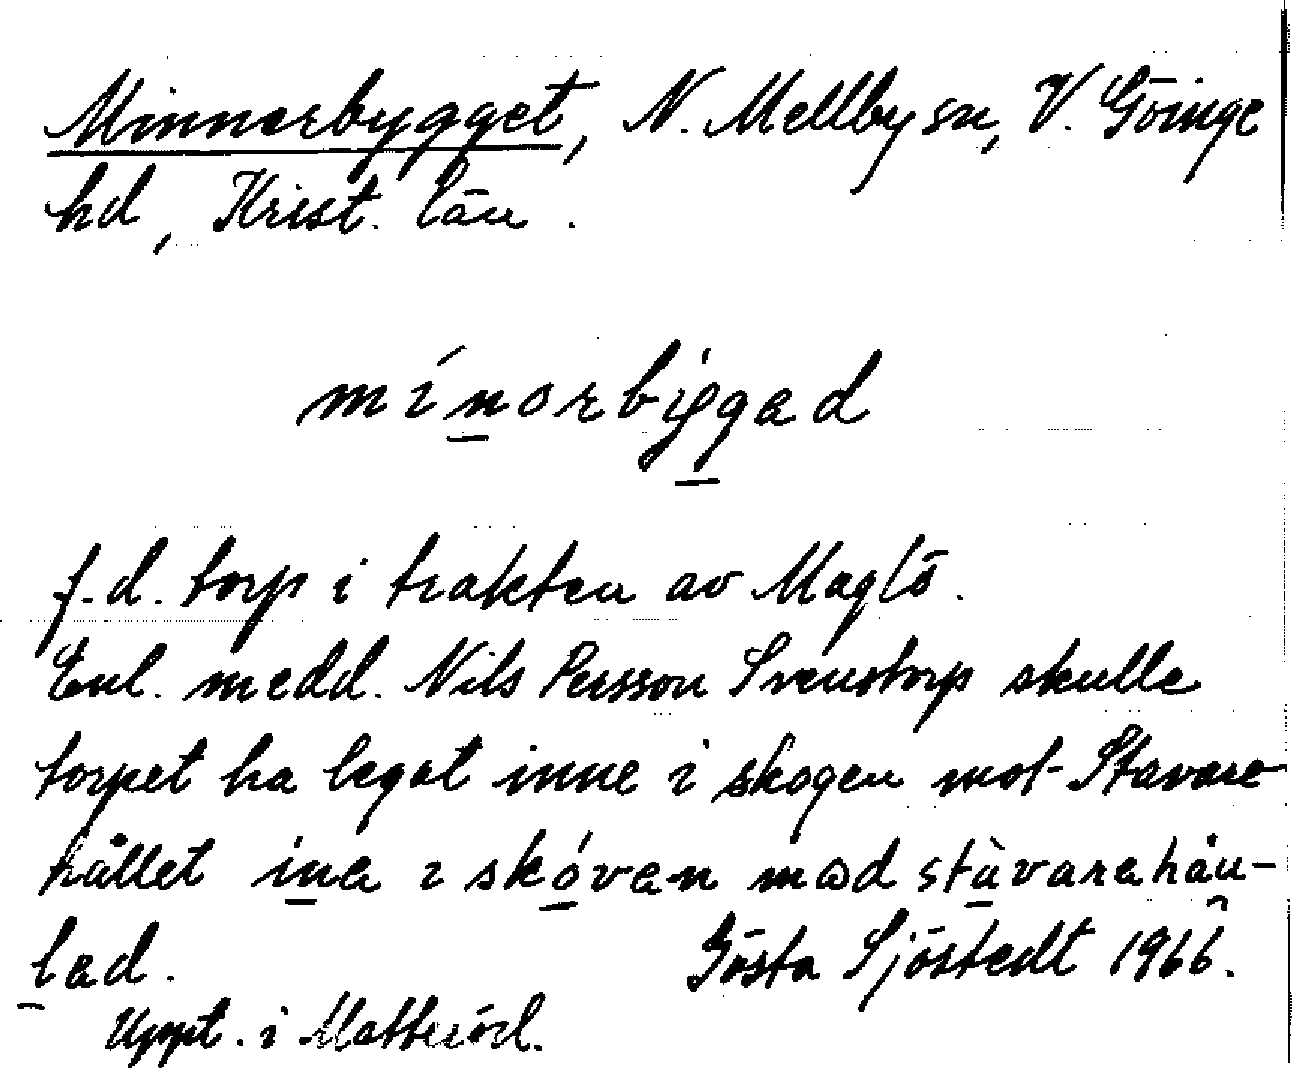 Minnorbygget, N. Mellby sn, V. Göinge
hd, Krist. län.
mínorbyggad
f.d. torp i trakten av Maglö.
Enl. medd. Nils Persson Svenstorp skulle
torpet ha legat inne i skogen mot Stavare-
hållet ina i skóvan mod stàvarahåu-
lad.
Gösta Sjöstedt 1966.
Uppt. i Matteröd.